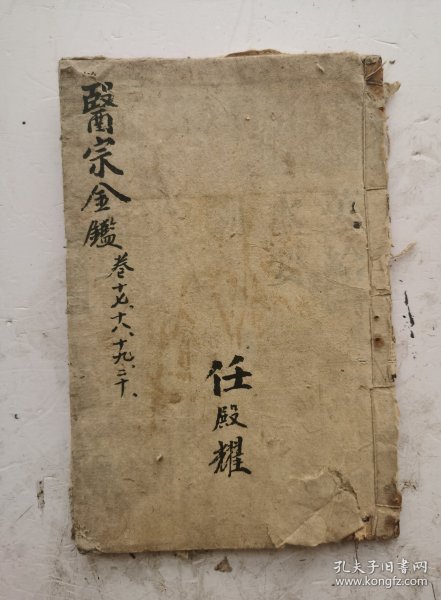 醫宗金鑑
卷十七、十八、十九、二十、
任殿耀
孔夫子旧书网
www.kongfz.com